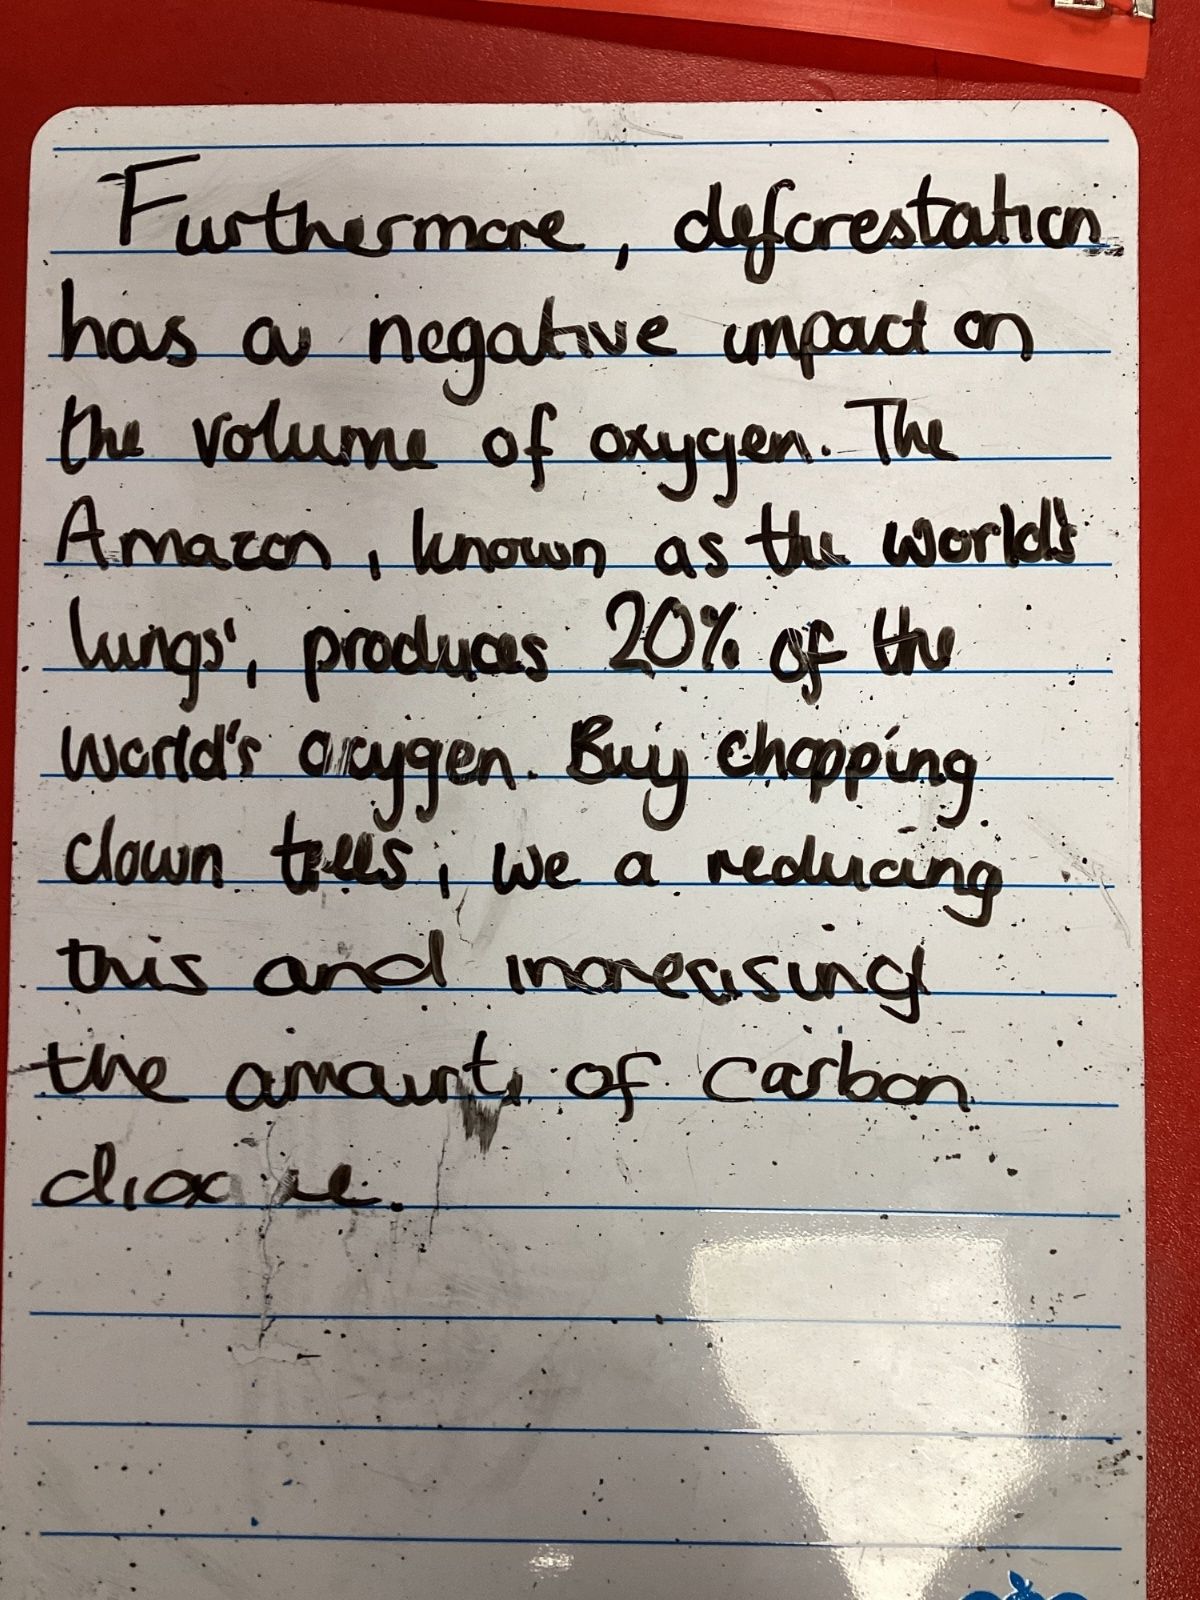 Furthermore, deforestation
has a negative impact on
the volume of oxygen. The
Amazon, known as the world's
lungs', produces 20% of the
world's oxygen. Buy chopping
down trees, we a reducing
this and increasing
the amount of carbon